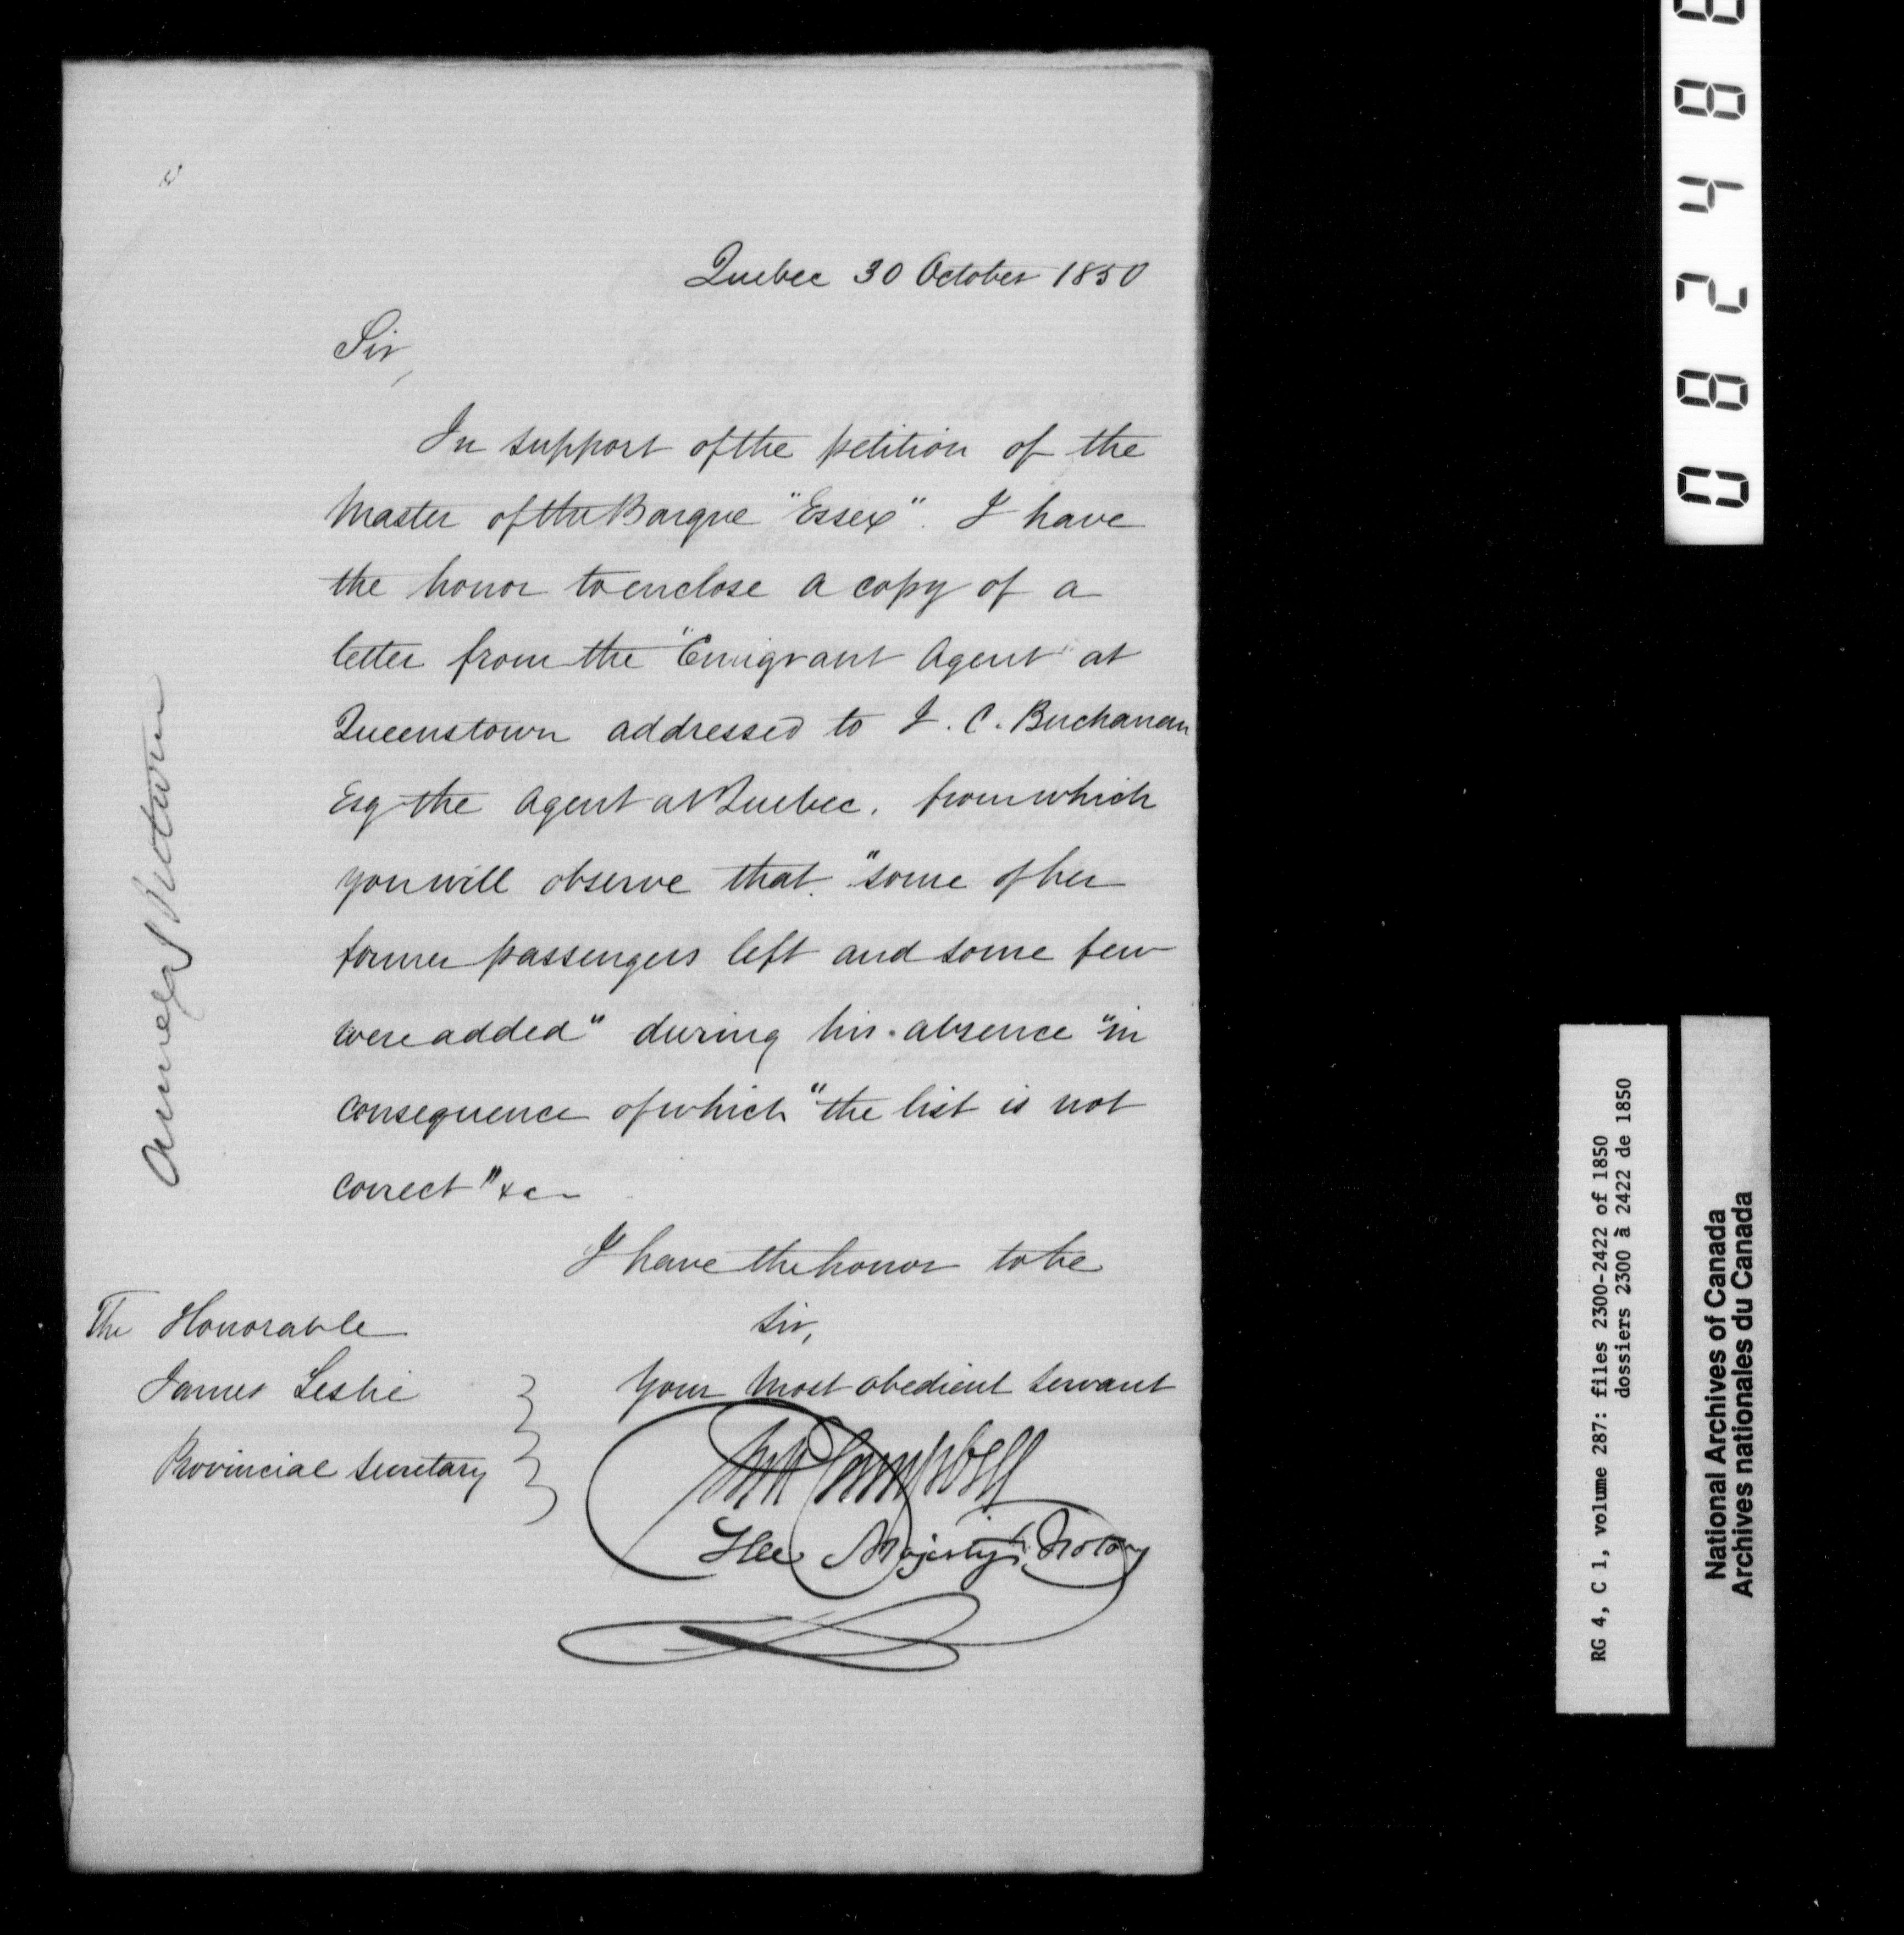 Quebec 30 October 1850
Sir,
In support of the petition of the
Master of the Barque "Essex". I have
the honor to enclose a copy of a
letter from the "Emigrant Agent" at
Queenstown addressed to J. C. Buchanan
Esq the Agent at Quebec. from which
you will observe that "some of her
former passengers left and some few
were added" during his absence "in
consequence of which "the list is not
correct" &c
I have the honor to be
Sir,
Your most obedient Servant
Campbell
Her Majesty's Notary
The Honorable
James Leslie
Provincial Secretary
082488
RG 4, C 1, volume 287: files 2300-2422 of 1850
dossiers 2300 à 2422 de 1850
National Archives of Canada
Archives nationales du Canada